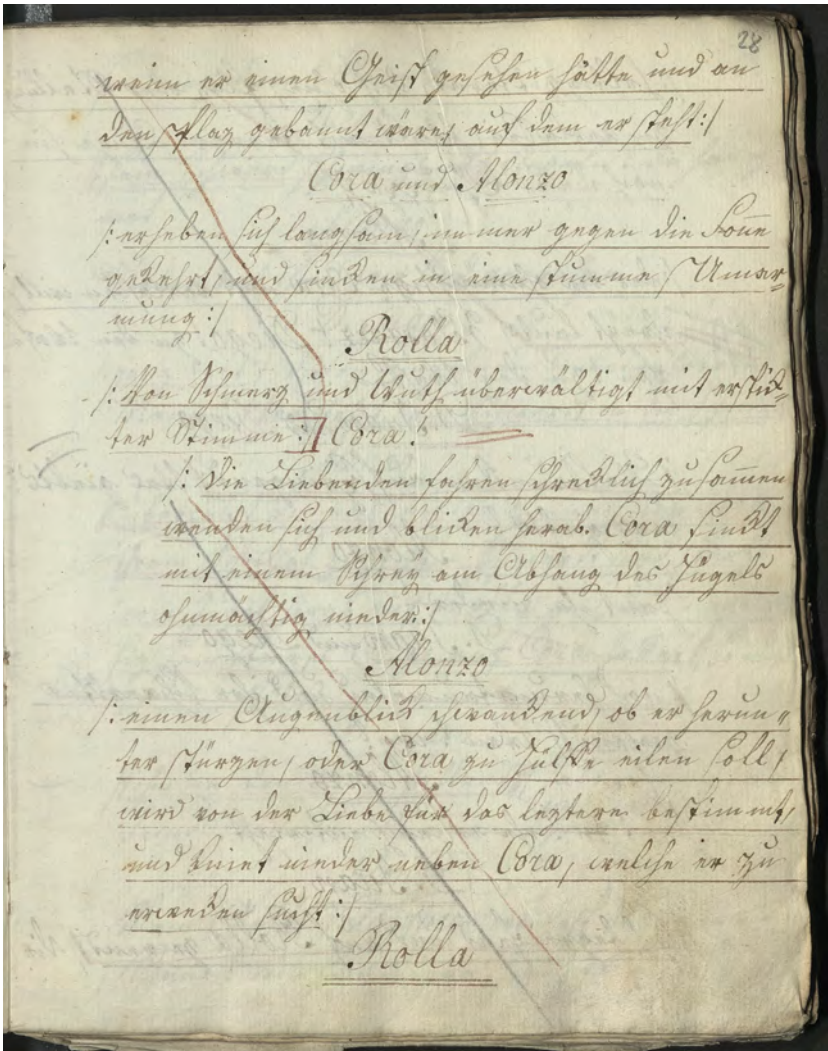 28
wenn er einen Geist gesehen hätte und an
den Plaz gebannt wäre, auf dem er steht:/
Cora und Alonzo
/: erheben sich langsam, immer gegen die Soñe
gekehrt, und sinken in eine stumme Umar=
mung:/
Rolla
/: Von Schmerz und Wuth überwältigt mit erstik=
ter Stimme:/ Cora!
/: Die Liebenden fahren schreklich zusam̄en
wenden sich und bliken herab. Cora sinkt
mit einem Schrey am Abhang des Hügels
ohnmächtig nieder:/
Alonzo
/: einen Augenblik schwankend, ob er herun=
ter stürzen, oder Cora zu Hülfe eilen soll,
wird von der Liebe für das leztere bestimmt,
und kniet nieder neben Cora, welche er zu
erweken sucht:/
Rolla